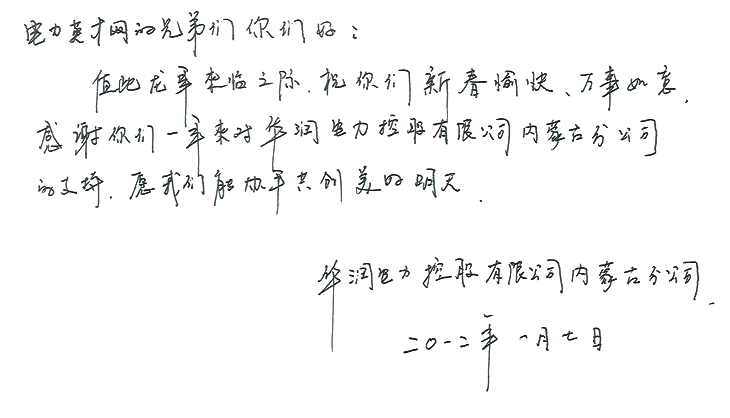 电力英才网的兄弟们你们好：
值此龙年来临之际，祝你们新春愉快、万事如意，
感谢你们一年来对华润电力控股有限公司内蒙古分公司
的支持，愿我们能携手共创美好明天。
华润电力控股有限公司内蒙古分公司。
二〇一二年一月七日